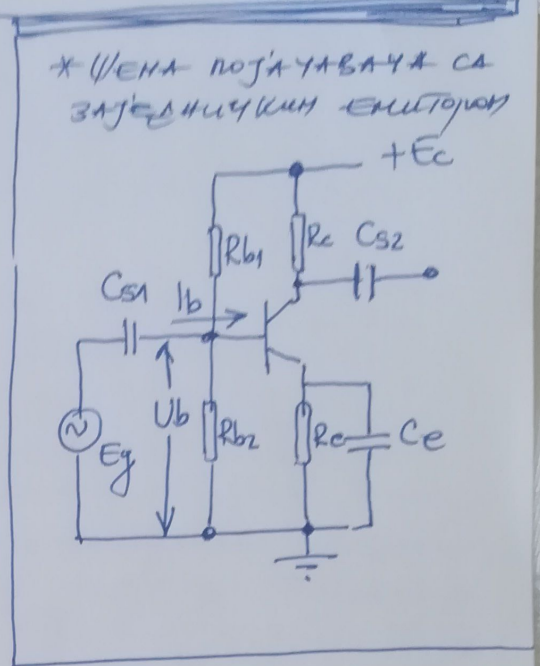 * ШЕМА ПОЈАЧАВАЧА СА
ЗАЈЕДНИЧКИМ ЕМИТОРОМ
+Ec
Rb1
Rc
Cs2
Cs1
Ib
Ub
Eg
Rb2
Re
Ce